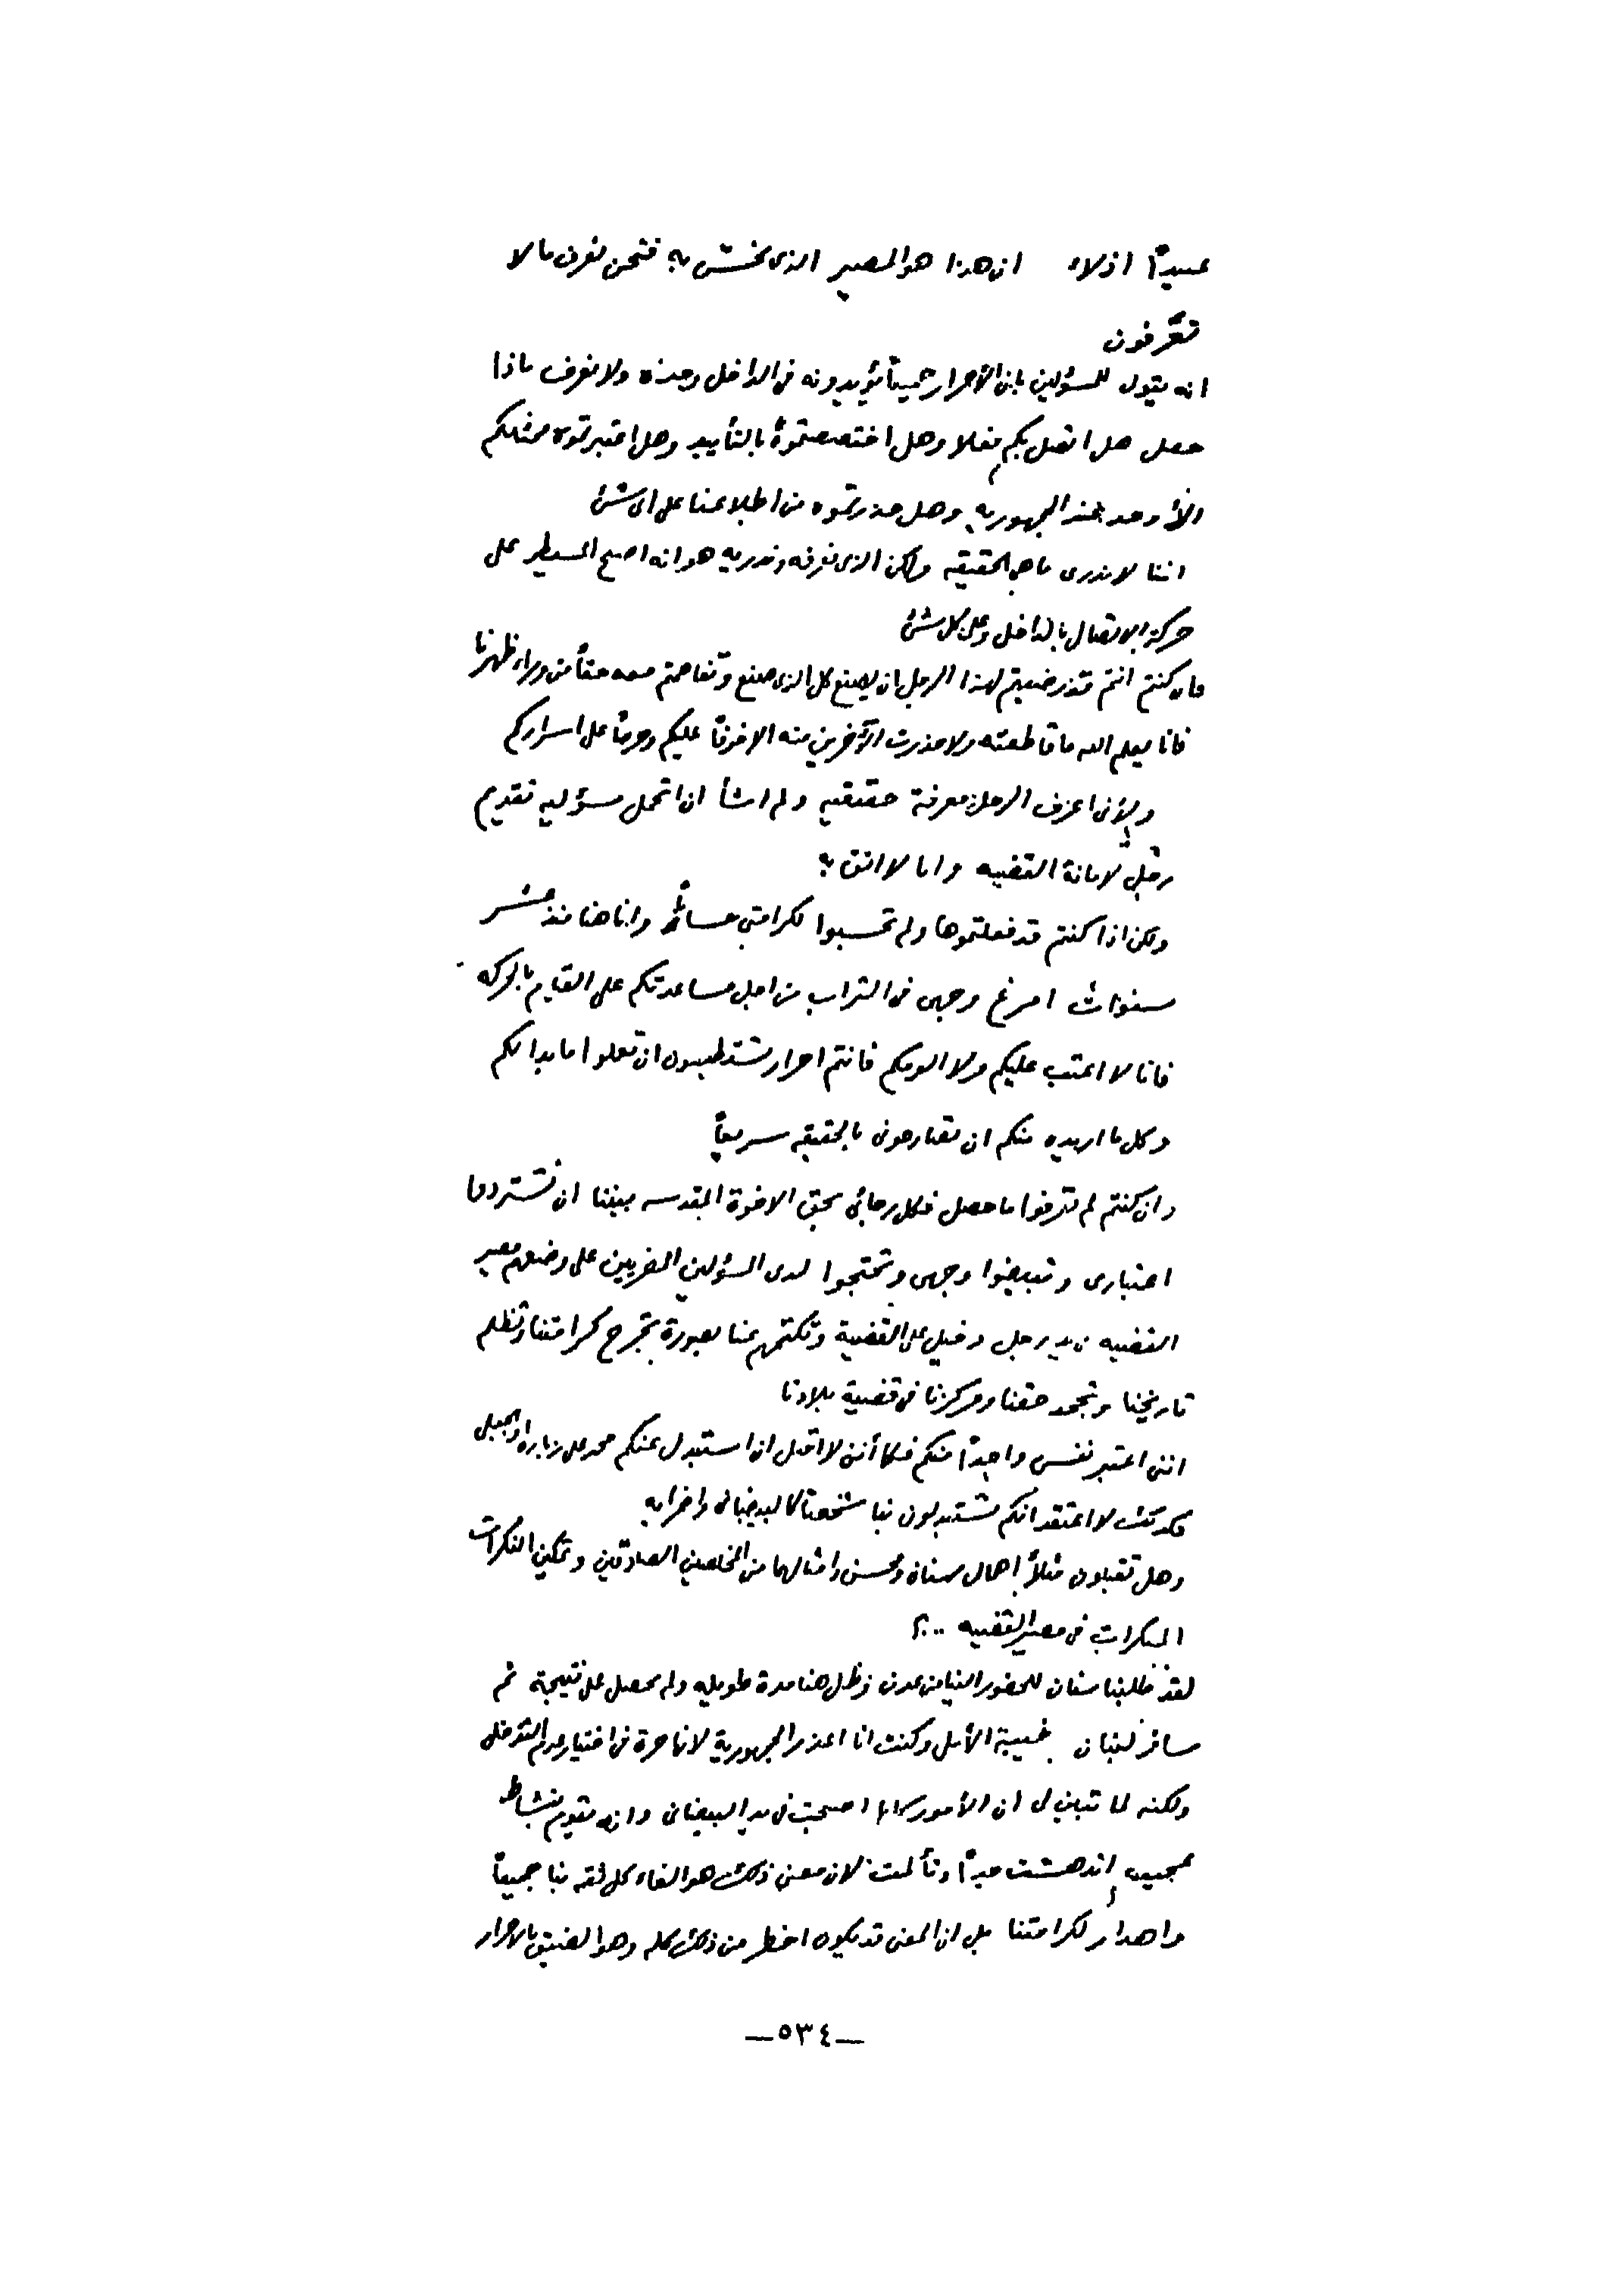 عبيداً اذلاء ان هذا هو المصير الذى نخشى به فنحن نعرف ما لا
تعرفون
انه يقول للمسؤلين بان الأحرار جميعاً يؤيدونه فى الداخل وحده ولا نعرف ماذا
حصل هل اتصل بكم فعلا وهل اختصصتموهُ بالتأييد وهل اعتبرتموه ممثلكم
الأوحد عند الجمهوريه وهل حذرتموه من اطلاعنا على اى شئ
اننا لا ندرى ما هى الحقيقه ولكن الذى نعرفه وندريه هو انه اصبح المسيطر على
حركة الاتصال بالداخل وعلى كل شئ
فان كنتم انتم قد رضيتم لهذا الرجل ان يصنع كل الذى صنع وتفاهمتم معه حقاً من وراء ظهرنا
فانا يعلم الله ما قاطعته ولا حذرت الآخرين منه الا خوفاً عليكم وحرصاً على اسراركم
ولأنى اعرف الرجل معرفة حقيقيه ولم اشأ ان اتحمل مسؤليه تقديم
رجل لامانة القضيه وانا لا اثق به
ولكن اذا كنتم قد فعلتموها ولم تحسبوا لكرامتى حساباً وانا هنا منذ عشر
سنوات امرغ وجهى فى التراب من اجل مساعدتكم على القيام بالحركه
فانا لا اعتب عليكم ولا الومكم فانتم احرار تستطيعون ان تعملوا ما بدا لكم
وكل ما اريده منكم ان تصارحونى بالحقيقه سريعاً
وان كنتم لم تعرفوا ما حصل فكل رجائى بحق الاخوة المقدسه بيننا ان تستردوا
اعتبارى وتبيضوا وجهى وتحتجوا لدى المسؤلين المصريين على وضعهم مصير
القضيه فى يد رجل دخيل على القضية وتكتمهم عنا بصورة تجرح كرامتنا وتظلم
تاريخنا وتجحد حقنا ومركزنا فى قضية بلادنا
اننى اعتبر نفسى واحداً منكم فكما أننى لا اقبل ان استبدل عنكم محمد على زباره او الجبلى
فكذلك لا اعتقد انكم تستبدلون بنا شخصاً كالبيضانى واضرابه
وهل تقبلون مثلاً إهمال سنان ومحسن وامثالهما من المخلصين الصادقين وتمكين النكرات
المنكرات فى مصير القضيه ..؟
لقد طلبنا سنان للحضور الينا من عدن وظل هنا مدة طويله ولم يحصل على نتيجة ثم
سافر لبنان بخيبة الأمل وكنت انا اعذر الجمهورية لانها حرة فى اختيار عدم التدخل
ولكنه لما تبين لى ان الأمور كلها اصبحت فى يد البيضانى وانه يقوم بنشاط
عجيب اندهشت جداً وتألمت لان معنى ذلك هو الغاء كل ثقه بنا جميعاً
واهدار لكرامتنا بل ان المعنى قد يكون اخطر من ذلك كله وهو الضيق بالاحرار
—٥٣٤—